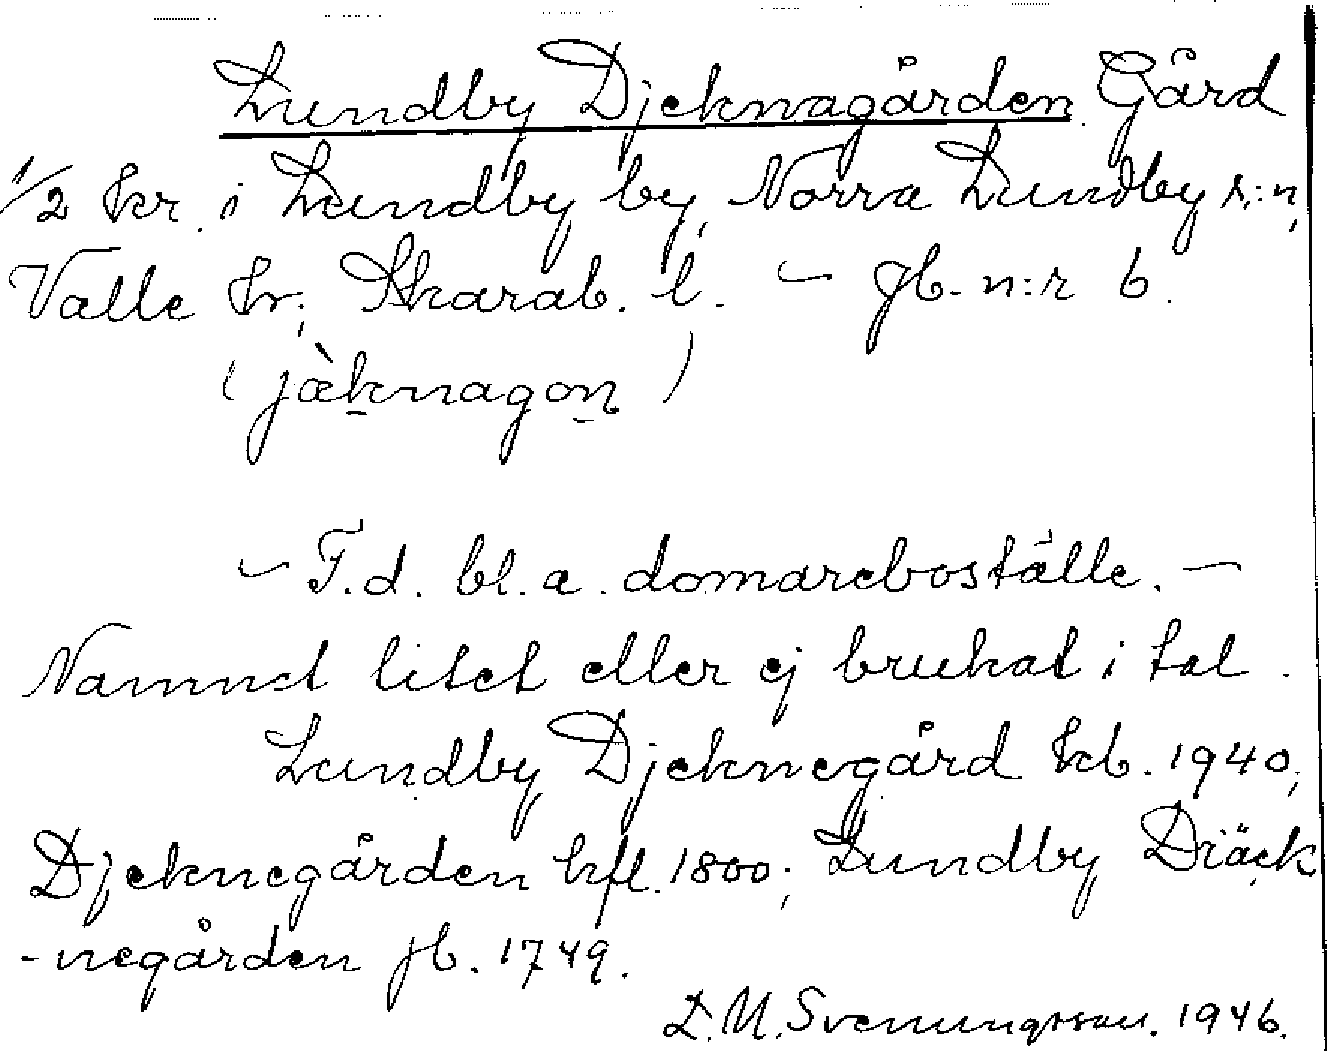 Lundby Djeknagården Gård
1/2 kr. i Lundby by, Norra Lundby s:n,
Valle hr; Skarab. l. – jb. n:r 6.
(jæ̀knagon)
– F.d. bl.a. domareboställe. –
Namnet litet eller ej brukat i tal.
Lundby Djeknegård kb. 1940;
Djeknegården hfl. 1800; Lundby Diäck
-negården jb. 1749.
D. M. Svenungsson. 1946.